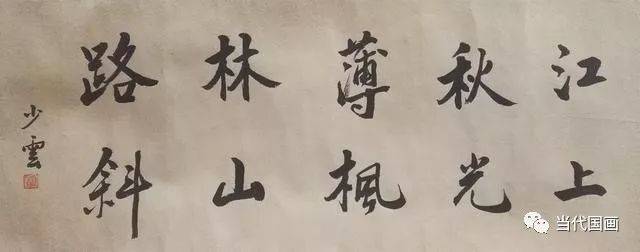 江上
秋光
薄枫
林山
路斜
少雲
当代国画